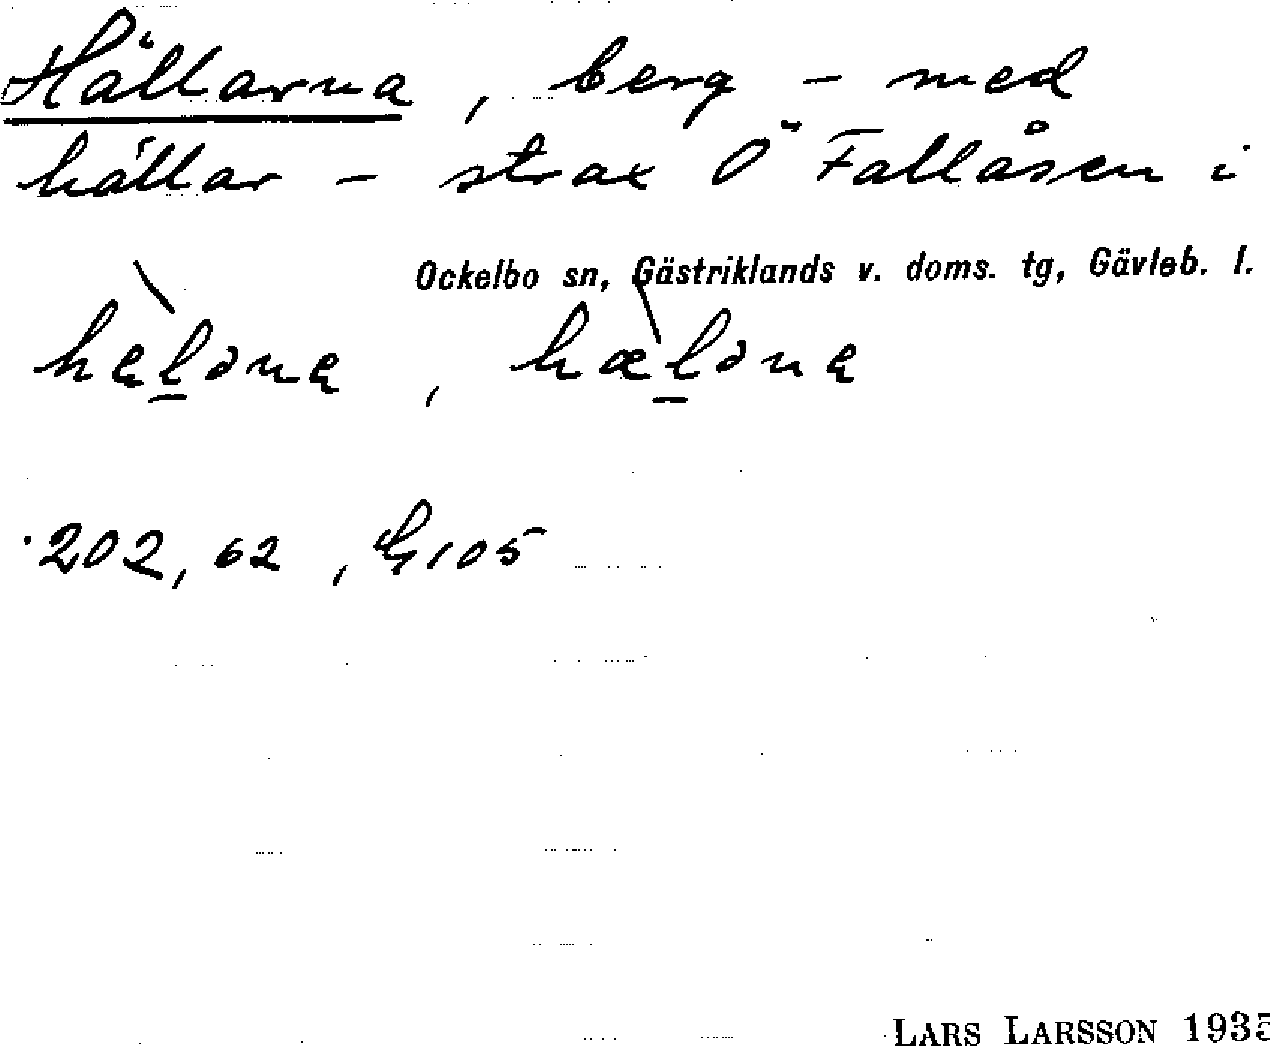 Hällarna, berg – med
hällar – strax Ö Fallåsen i
Ockelbo sn, Gästriklands v. doms. tg, Gävleb. l.
202, 62, G105
LARS LARSSON 1935